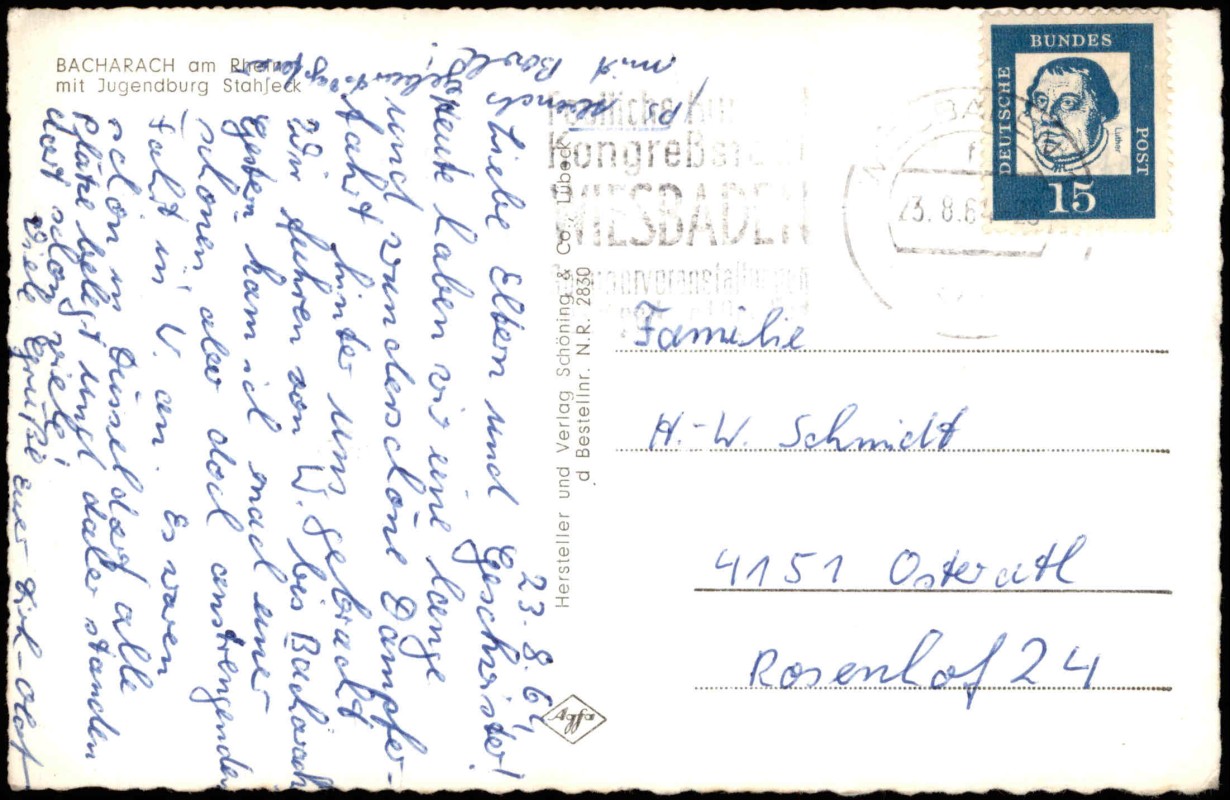 BACHARACH am Rhein
mit Jugendburg Stahleck
23.8.61
Liebe Eltern und Geschwister!
Heute haben wir eine lange
und wunderschöne Dampfer-
fahrt hinter uns gebracht
Wir fuhren von W. bis Bacharach
Gestern kam ich nach einer
schönen aber doch anstrengenden
Fahrt in W. an. Es waren
schon in Düsseldorf alle
Plätze belegt und daher standen
dort schon viele!
Viele Grüße Euer Dirk-Olaf
mit Bowle
Hersteller und Verlag Schöning & Co., Lübeck
d Bestellnr. N.R. 2830
Agfa
Kongreßstadt
WIESBADEN
23.8.61
DEUTSCHE
BUNDES
POST
Luther
15
Familie
H.-W. Schmidt
4151 Osterath
Rosenhof 24